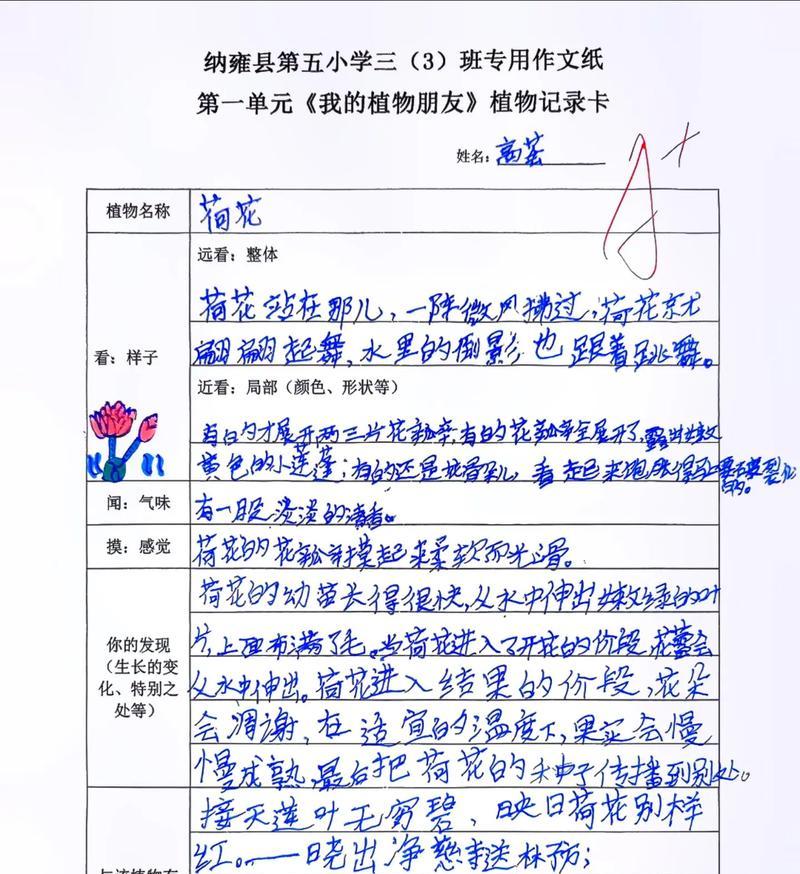 纳雍县第五小学三（3）班专用作文纸
第一单元《我的植物朋友》植物记录卡
姓名：高芸
A+
植物名称
荷花
看：样子
远看：整体
荷花站在那儿，一阵微风拂过，荷花就
翩翩起舞，水里的倒影也跟着跳舞。
近看：局部（颜色、形状等）
有的才展开两三片花瓣，有的花瓣全展开了，露出嫩
黄色的小莲蓬；有的还是花骨朵儿，看起来饱胀得马上要破裂似
的。
闻：气味
有一股淡淡的清香。
摸：感觉
荷花的花瓣摸起来柔软而光滑。
你的发现
（生长的变
化、特别之
处等）
荷花的幼苗长得很快，从水中伸出嫩绿的叶
片，上面布满了毛。当荷花进入了开花的价段，花蕾会
从水中伸出。荷花进入结果的价段，花朵
会凋谢，在适宜的温度下，果实会慢
慢成熟，最后把荷花的种子传播到别处。
与该植物有
接天莲叶无穷碧，映日荷花别样
红。——晓出净慈寺送林